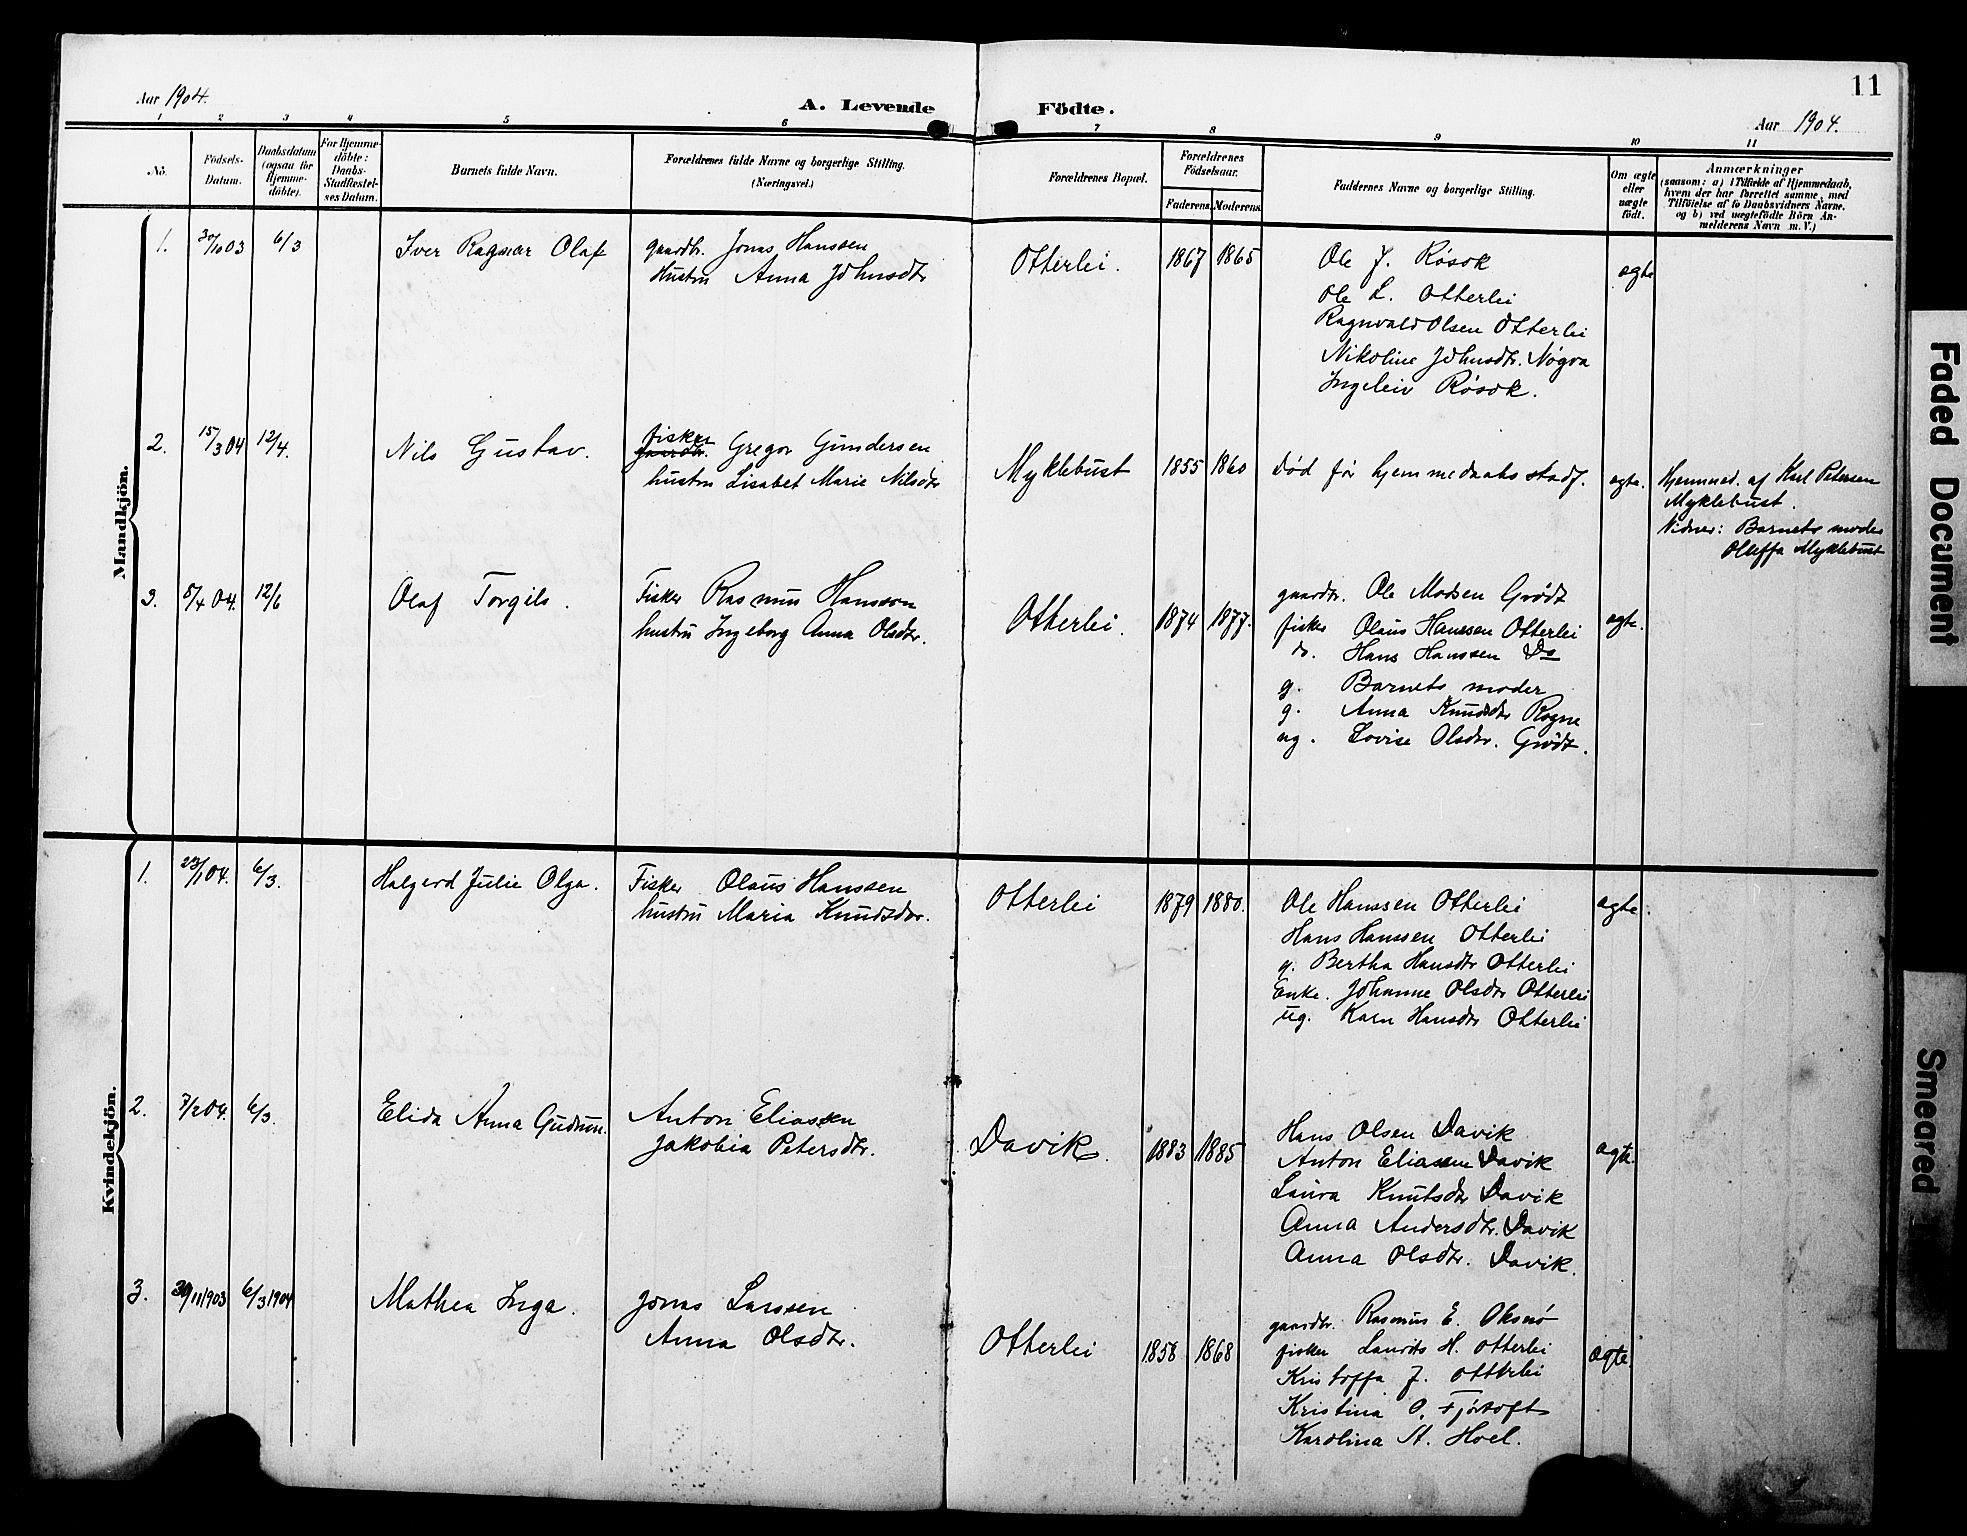 11
Aar 1904.
A. Levende Födte.
Aar 1904.
1 2 3 4 5 6 7 8 9 10 11
No.
Födsels-
Datum.
Daabsdatum
(ogsaa för
Hjemme-
döbte).
For Hjemme-
döbte:
Daabs-
Stadfæstel-
ses Datum.
Barnets fulde Navn.
Forældrenes fulde Navne og borgerlige Stilling.
(Næringsvei.)
Forældrenes Bopæl.
Forældrenes
Födselsaar.
Faderens. Moderens.
Faddernes Navne og borgerlige Stilling.
Om ægte
eller
uægte
födt.
Anmærkninger
(saasom: a) i Tilfælde af Hjemmedaab,
hvem der har forrettet samme, med
Tilföielse af to Daabsvidners Navne.
og b) ved uægtefödte Börn An-
melderens Navn m. V.)
Mandkjön.
1. 30/10 03 6/3 Iver Ragnar Olaf
gaardbr. Jonas Hanssen
Hustru Anna Johnsdtr
Otterlei. 1867 1865
Ole J. Røsok
Ole L. Otterlei
Ragnvald Olsen Otterlei
Nikoline Johnsdtr. Nogva
Ingeleiv Røsok.
ægte
2. 15/3 04 12/4. Nils Gustav.
fisker
gaardbr. Gregor Gundersen
hustru Lisabet Marie Nilsdtr
Myklebust 1855 1860
Død før hjemmedaabs stadf.
ægte.
Hjemmed. af Karl Petersen
Myklebust.
Vidner: Barnets moder
Oluffa Myklebust
3. 5/4 04. 12/6 Olaf Torgils.
Fisker Rasmus Hansson
hustru Ingeborg Anna Olsdtr.
Otterlei. 1874 1877.
gaardbr. Ole Madsen Grødt
fisker Olaus Hanssen Otterlei
do. Hans Hanssen Do
g. Barnets moder
g. Anna Knudsdtr Rogne
ug. Lovise Olsdtr. Grødt.
ægte.
Kvindekjön.
1. 23/1 04. 6/3. Halgerd Julie Olga.
Fisker Olaus Hanssen
hustru Maria Knudsdtr.
Otterlei 1879 1880.
Ole Hanssen Otterlei
Hans Hanssen Otterlei
g. Bertha Hansdtr Otterlei
Enke. Johanne Olsdtr Otterlei
ug. Karn Hansdtr Otterlei
ægte.
2. 7/2 04. 6/3. Elida Anna Gudrun.
Anton Eliassen
Jakobia Petersdtr.
Davik. 1883 1885
Hans Olsen Davik
Anton Eliassen Davik
Laura Knutsdtr Davik
Anna Andersdtr. Davik
Anna Olsdtr. Davik.
ægte.
3. 30/11 1903 6/3 1904 Mathea Inga.
Jonas Larssen
Anna Olsdtr.
Otterlei 1858 1868
gaardbr. Rasmus E. Oksnø
fisker Laurits H. Otterlei
Kristoffa J. Otterlei
Kristina O. Fjørtoft
Karolina A. Hoel.
ægte.
Faded Document
Smeared